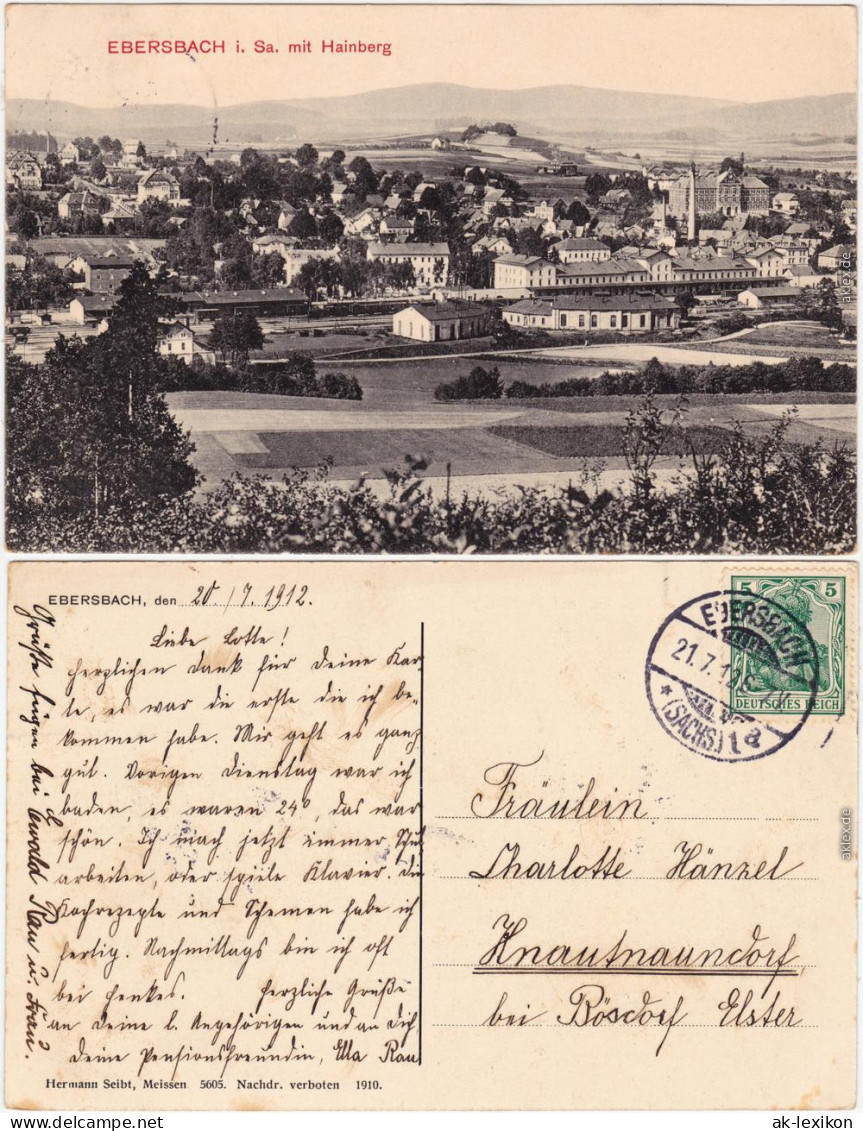 EBERSBACH i. Sa. mit Hainberg
EBERSBACH, den 20./7. 1912.
Liebe Lotte!
Herzlichen Dank für Deine Kar-
te, es war die erste die ich be-
kommen habe. Mir geht es ganz
gut. Vorigen Dienstag war ich
baden, es waren 24°, das war
schön. Ich mach jetzt immer
arbeiten, oder spiele Klavier. Die
Kochrezepte und Themen habe ich
fertig. Nachmittags bin ich oft
bei Henkes. Herzliche Grüße
an Deine l. Angehörigen und an Dich
Deine Pensionsfreundin, Ella Rau
Grüße fügen bei Ewald Rau u. Frau.
Hermann Seibt, Meissen 5605. Nachdr. verboten 1910.
5
DEUTSCHES REICH
EBERSBACH
21.7.12
* (SACHS.) 1 a
Fräulein
Charlotte Hänzel
Knautnaundorf
bei Bösdorf Elster
aklex.de
aklex.de
aklex.de
ak-lexikon